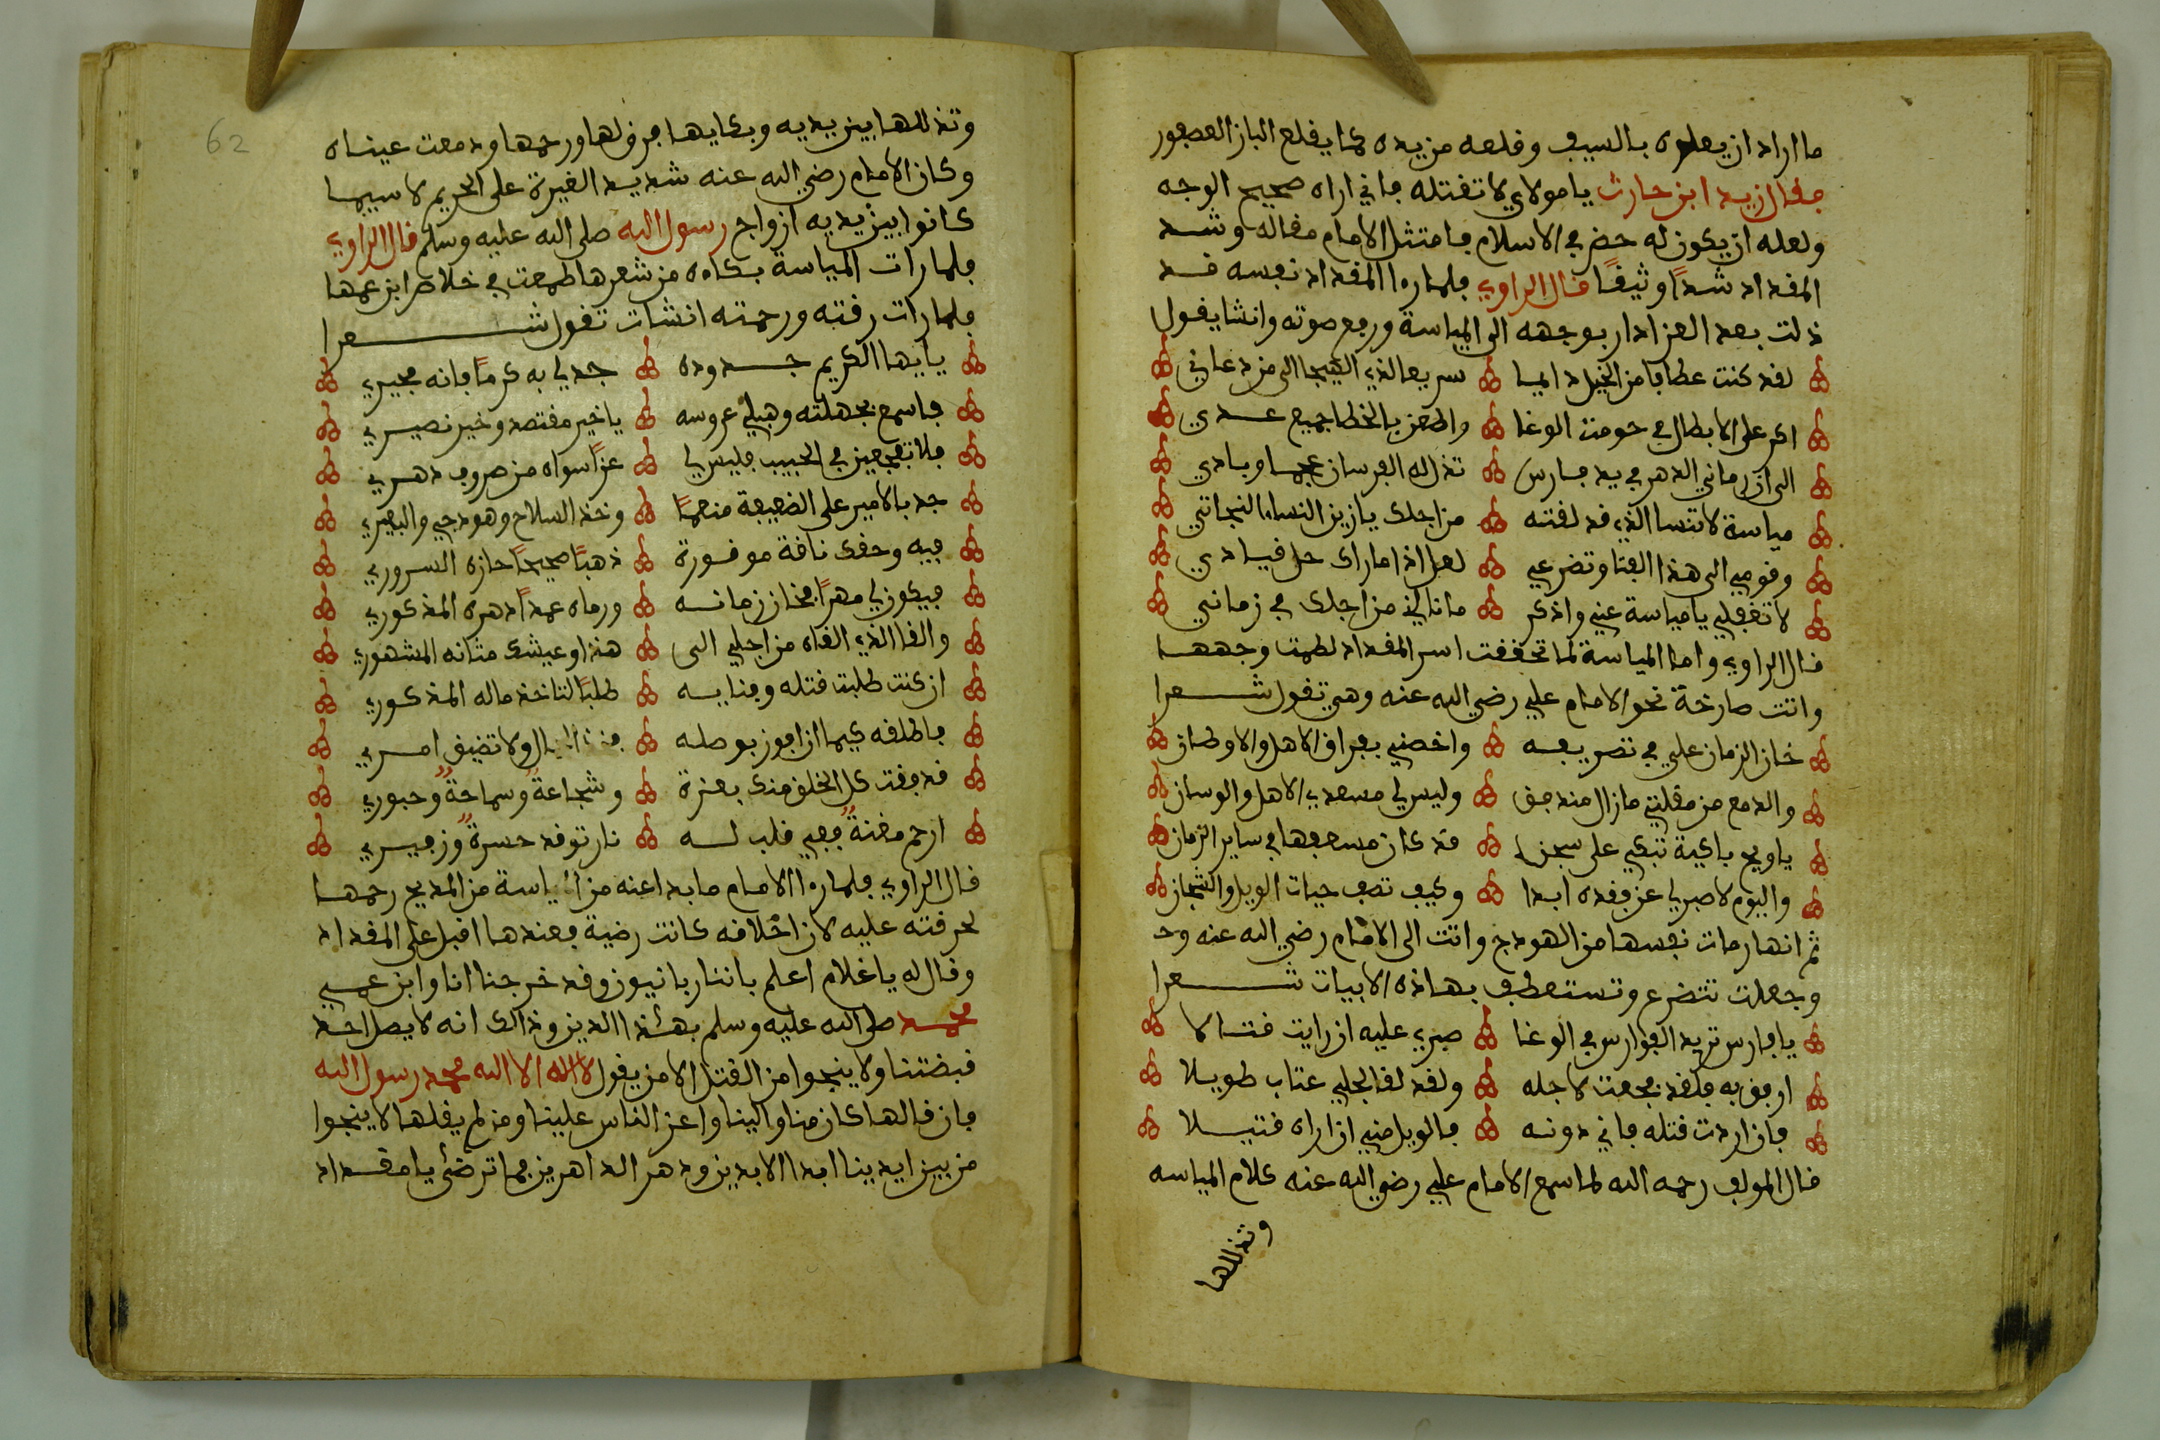 ما اراد ان يعلوه بالسيف وقلعه من يده كما يقلع الباز العصفور
فقال زيد ابن حارث يا مولاي لا تقتله فاني اراه صحيح الوجه
ولعله ان يكون له حض في الاسلام فامتثل الامام مقاله وشد
المقداد شدًا وثيقًا قال الراوي فلما را المقداد نفسه قد
ذلت بعد العز ادار بوجهه الى المياسة ورفع صوته وانشا يقول
لقد كنت عطافا من الخيل دايما سريعا الذي الهيجا الى من دعاني
اكر على الابطال في حومت الوغا واطعن بالخطا جميع عدي
الى ان رماني الدهر في يد فارس تذل له الفرسان عجما وبادي
مياسة لا تنسا الذي قد لقته من اجلك يا زين النساء النجاتي
وقومي الى هذا الفتا وتضرعي لعل اذا ما راك حل قيادي
لا تغفلي يا مياسة عني واذكر ما نالني من اجلك في زماني
قال الراوي واما المياسة لما تحققت اسر المقداد لطمت وجهها
واتت صارخة نحو الامام علي رضي الله عنه وهي تقول شعرا
خان الزمان علي في تصريفه واخصني بفراق الاهل والاوطان
والدمع من مقلتي مازال مندفق وليس لي مسعدي الاهل والوسان
يا ويح باكية تبكي على سجن قد كان مسعفها في ساير الزمان
واليوم لا صبر لي عن فقده ابدا وكيف تصف حيات الويل والشجان
ثم انها رمات نفسها من الهودج واتت الى الامام رضي الله عنه وحـ
وجعلت تتضرع وتستعطف بهاذه الابيات شعرا
يا فارس تريد الفوارس في الوغا صبري عليه ان رايت قتالا
ارفق به فلقد فجعت لاجله ولقد لقا لجلي عتاب طويلا
فان اردت قتله فاني دونه فالويل مني ان اراه قتيلا
قال المولف رحمه الله لما سمع الامام علي رضي الله عنه كلام المياسه
وتذللها
62
وتذللها بين يديه وبكايها فرق لها ورحمها ودمعت عيناه
وكان الامام رضي الله عنه شديد الغيرة على الحريم لاسيما
كانوا بين يديه ازواج رسول الله صلى الله عليه وسلم قال الراوي
فلما رات المياسة بكاءه من شعرها طمعت في خلاص ابن عمها
فلما رات رقته ورحمته انشات تقول شعرا
يا ايها الكريم جدوده جد لي به كرمًا فانه مجيري
فاسمع بجهلته وهبلي عروسه يا خير مقتصد وخير نصيري
فلا تفجعين في الحبيب فليس لي عزًا سواه من صروف دهري
جد بالامير على الضعيفة منعمًا وخذ السلاح وهودجي والبعيري
فيه وحقك ناقة موفورة ذهبًا صحيحًا حازه السروري
فيكون لي مهرًا فخان زمانه ورماه عمدًا دهره المذكوري
والفا الذي الفاه من اجلي الى هذا وعيشك مثانه المشهوري
ان كنت طلبت قتله وفنايه طلبًا لتاخذ ماله المذكوري
فاطلقه كيما ان افوز بوصله ولا تضيق امري
قد فقت كل الخلق منك بعزة وشجاعةً وسماحةً وحبوري
ارحم مغنةً ففي قلب له نار توقد حسرةً وزفيري
قال الراوي فلما را الامام ما بدا عنه من المياسة من المديح رحمها
لحرقته عليه لان اخلاقه كانت رضية فعندها اقبل على المقداد
وقال له يا غلام اعلم باننا ربانيون وقد خرجنا انا وابن عمي
محمد صلى الله عليه وسلم بهذا الدين وذالك انه لا يصل احد
قبضتنا ولا ينجوا من القتل الا من يقول لا اله الا الله محمد رسول الله
فان قالها كان منا والينا واعز الناس علينا ومن لم يقلها لا ينجوا
من بين ايدينا ابدا الابدين ودهر الداهرين فما ترضى يا مقداد